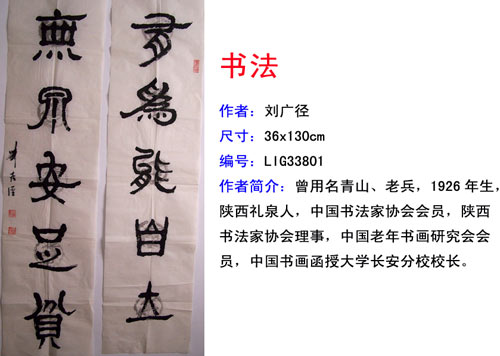 有為能自立
無
安
书法
作者：刘广径
尺寸：36x130cm
编号：LIG33801
作者简介：曾用名青山、老兵，1926年生，
陕西礼泉人，中国书法家协会会员，陕西
书法家协会理事，中国老年书画研究会会
员，中国书画函授大学长安分校校长。